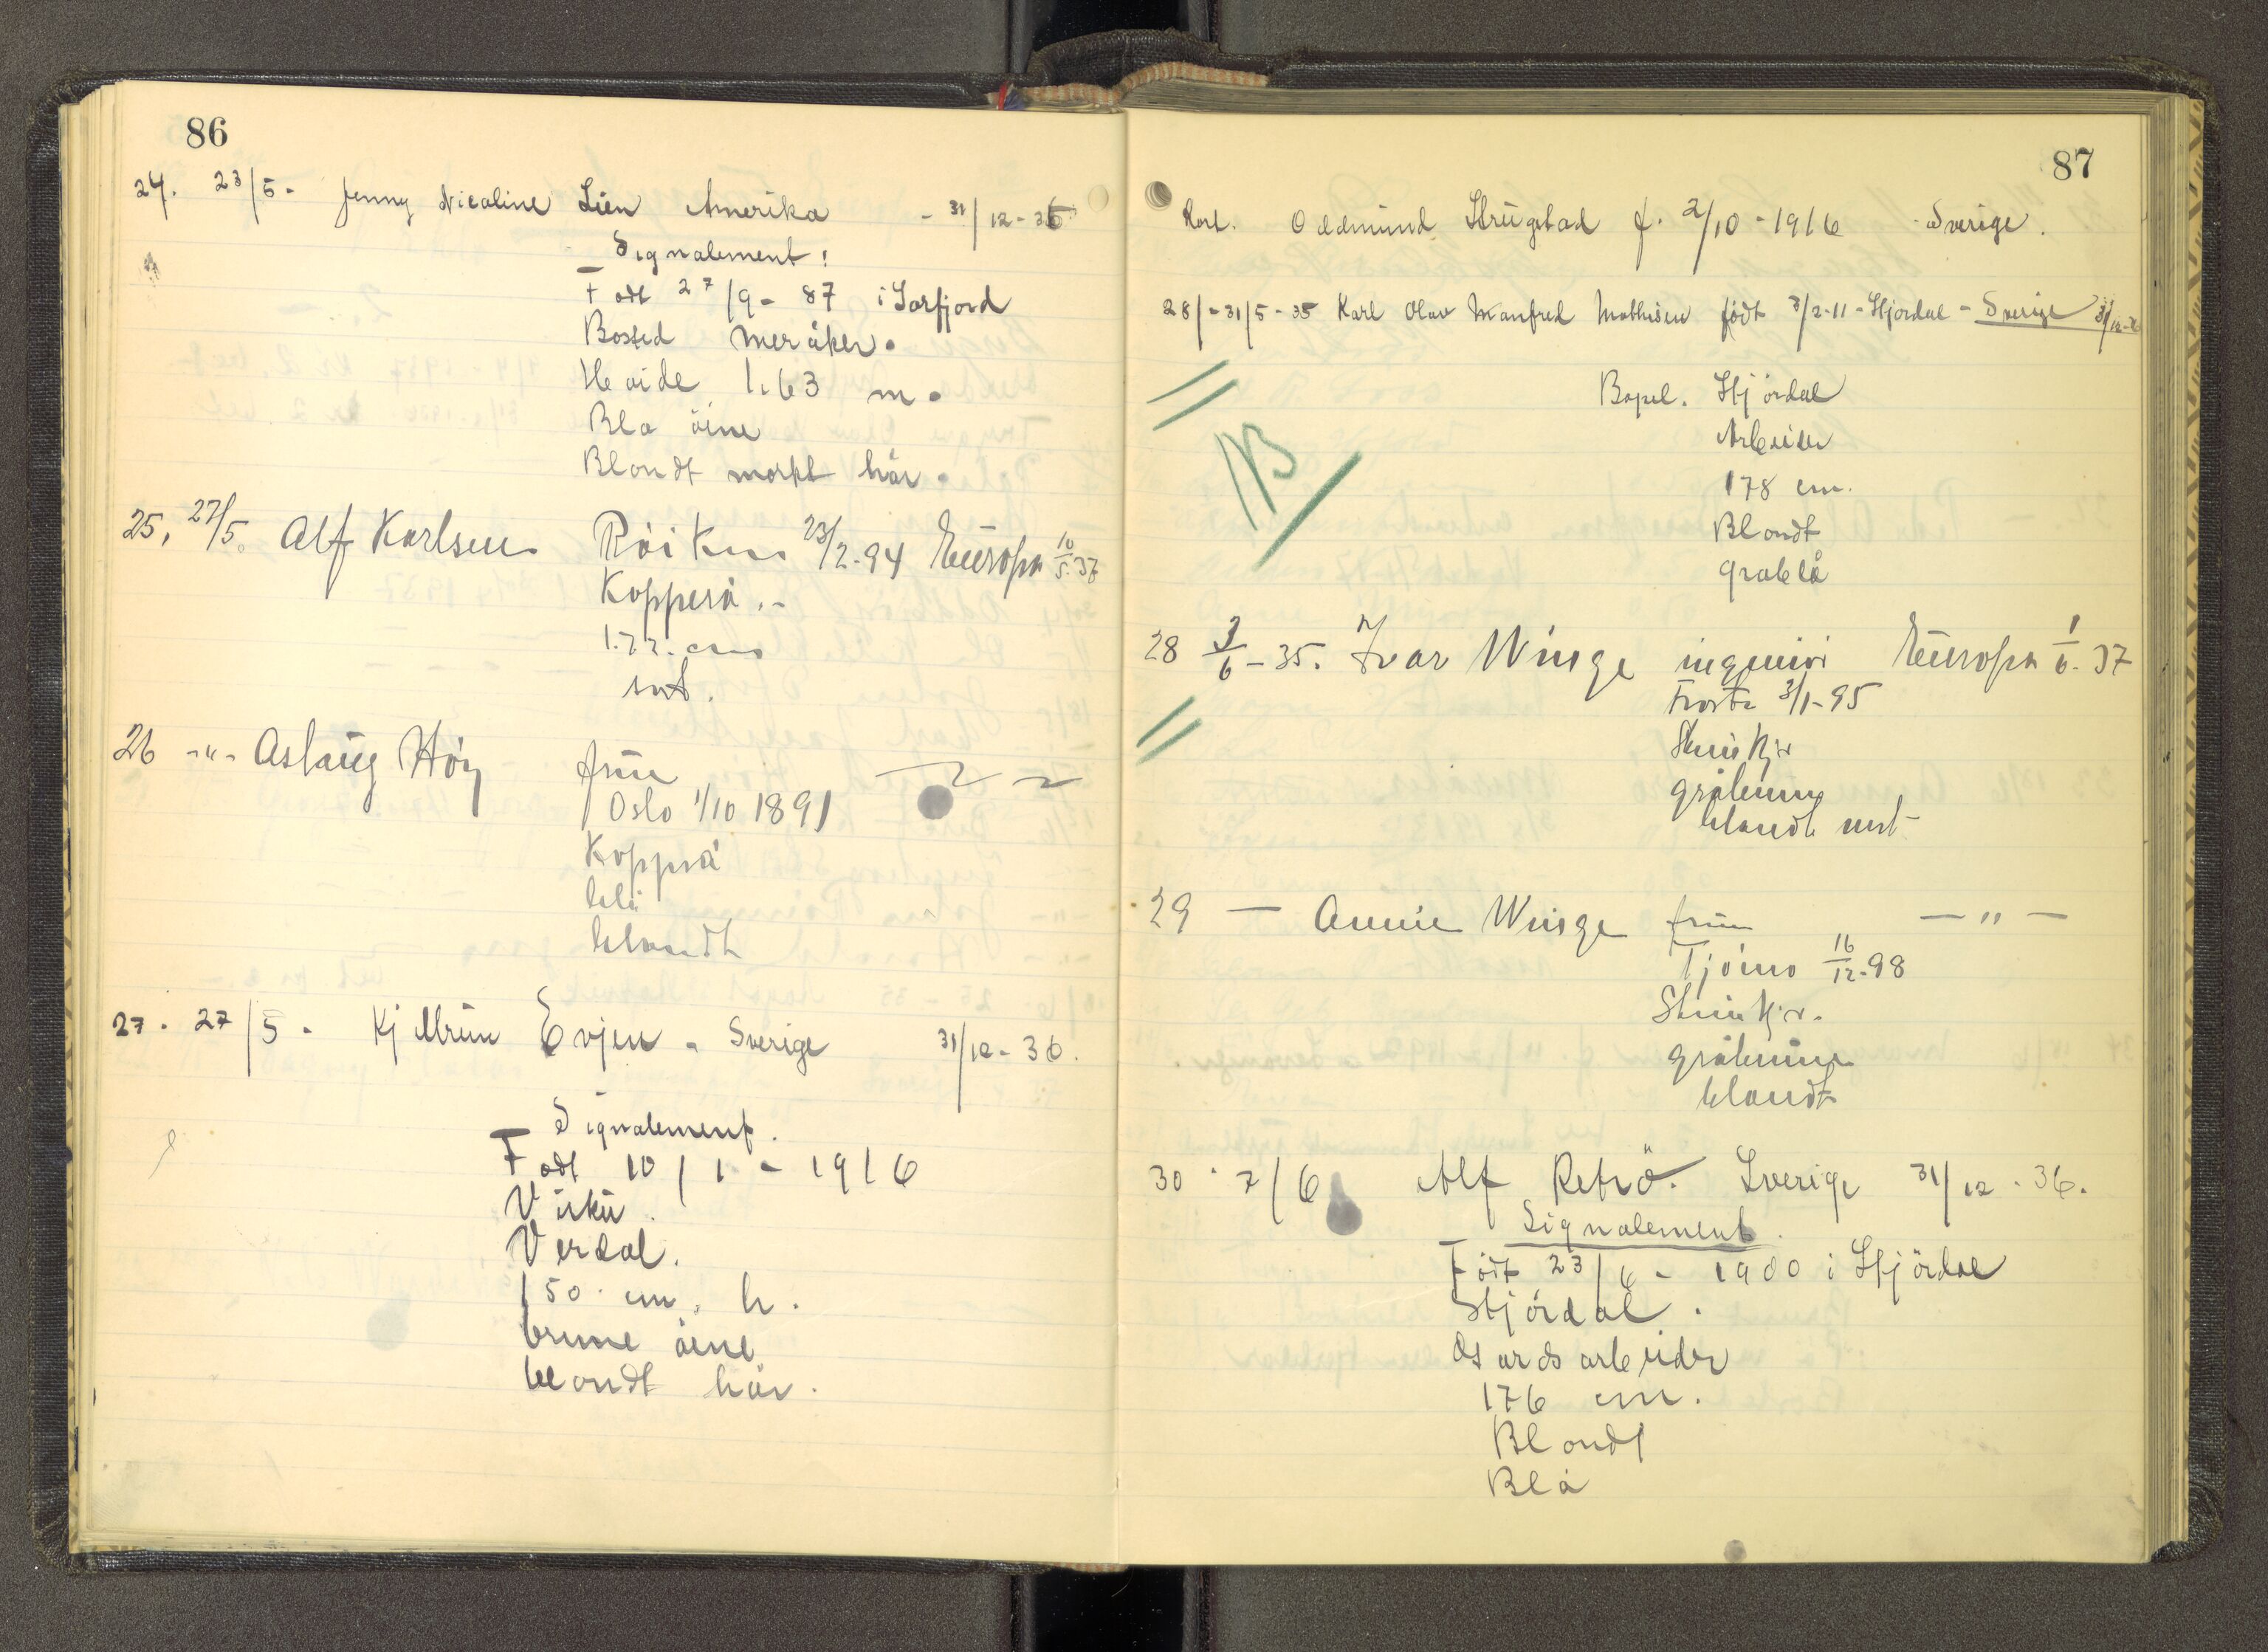 86
24. 23/5- Jenny Nicoline Lien Amerika - 31/12-36
Signalement:
Født 27/9-87 i Sørfjord
Bosted Meråker.
Høide 1.63 m.
Blå øine
Blondt mørkt hår.
25, 27/5. Alf Karlsen Röiken 23/2-94 Europa 10/5-37
Kopperå.-
1.72. cm
26 -"- Aslaug Höy frue
Oslo 1/10 1891
Kopperå
blå
blondt
27. 27/5. Kjellrun Evjen - Sverige 31/12-36.
Signalement.
Født 10/1-1916
Verdal.
150 cm. h.
brune øine
blondt hår.
87
Karl. Oddmund f. 2/10-1916 Sverige.
28/-31/5-35 Karl Olav Manfred Mathisen født 3/2-11-Stjørdal - Sverige 31/12-36
Bopel. Stjørdal
Arbeider
178 cm.
Blondt
gråblå
NB
28 3/6-35. Ivar Winge ingeniør Europa 1/6-37
Frosta 3/1-95
Steinkjer
gråbrune
blondt
29 — Annie Winge frue — " —
Tjømo 16/12-98
Steinkjer.
gråbrune
blondt
30. 7/6 Alf Sverige 31/12-36.
Signalement.
Født 23/6-1900 i Stjørdal
Stjørdal.
176 cm.
Blondt
Blå